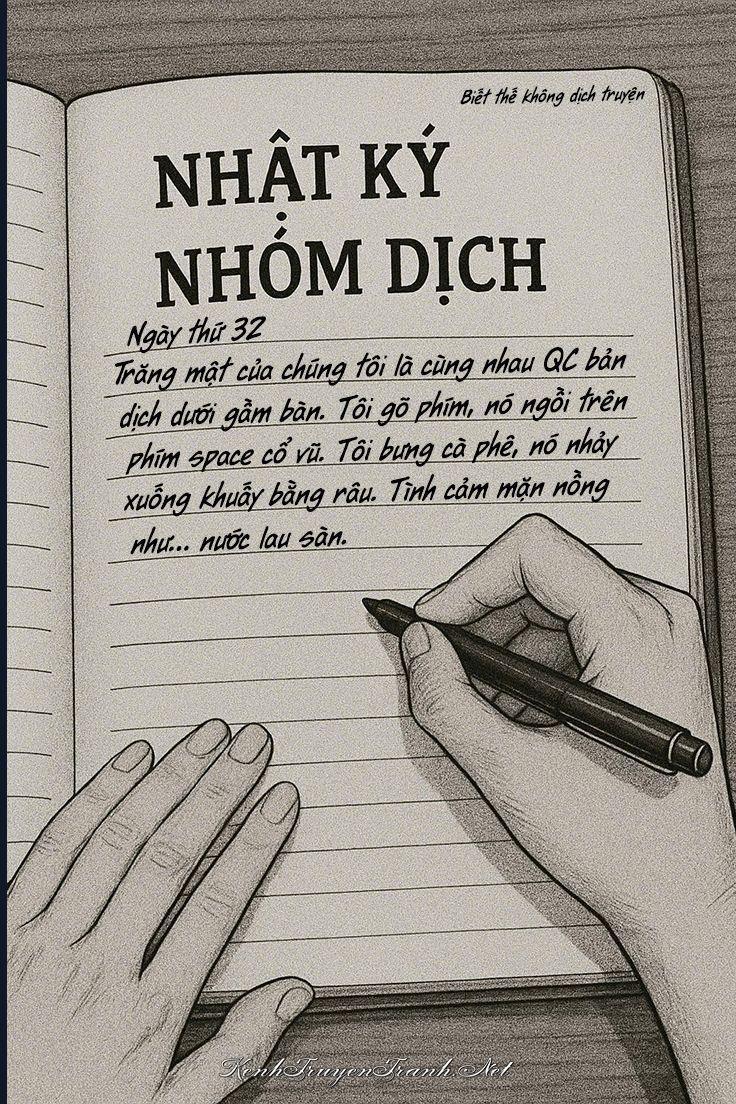 Biết thế không dịch truyện
NHẬT KÝ
NHÓM DỊCH
Ngày thứ 32
Trăng mật của chúng tôi là cùng nhau QC bản
dịch dưới gầm bàn. Tôi gõ phím, nó ngồi trên
phím space cổ vũ. Tôi bưng cà phê, nó nhảy
xuống khuấy bằng râu. Tình cảm mặn nồng
như... nước lau sàn.
KenhTruyenTranh.Net